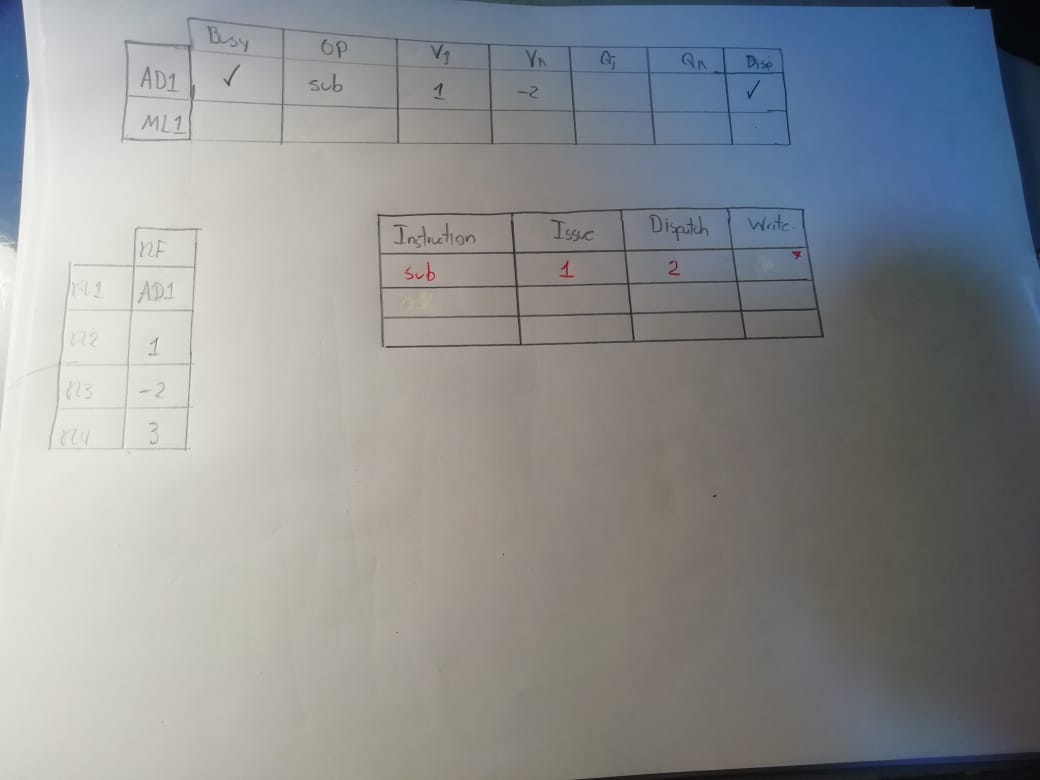 Busy OP Vj Vk Qj Qk Disp
AD1 ✓ sub 1 -2 ✓
ML1
RF
R1 AD1
R2 1
R3 -2
R4 3
Instruction Issue Dispatch Write.
sub 1 2